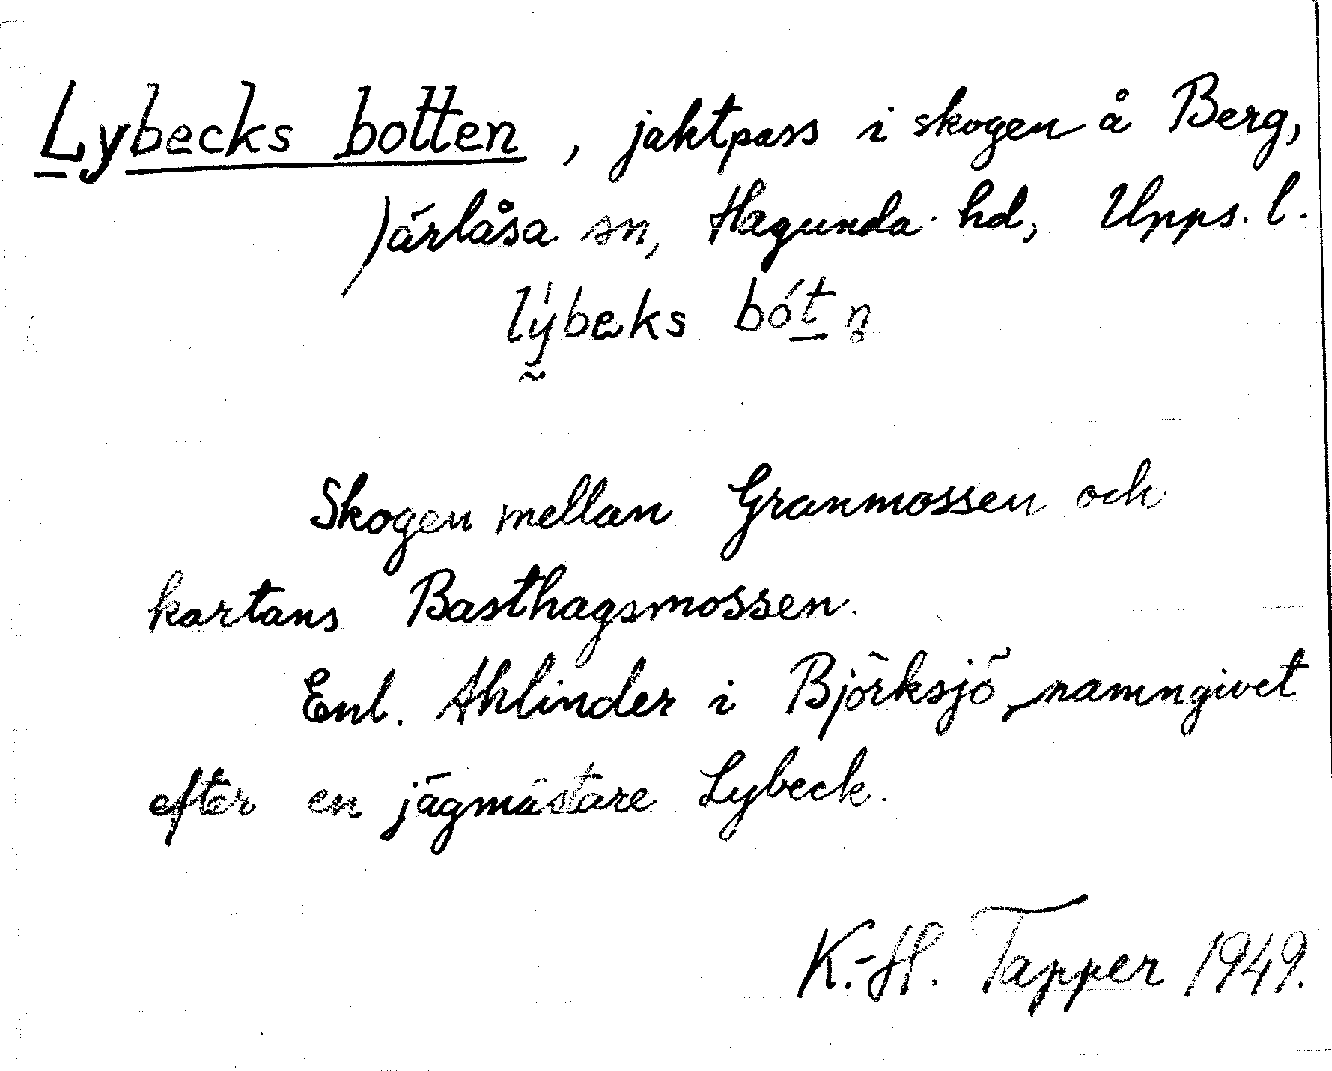 Lybecks botten, jaktpass i skogen å Berg,
Järlåsa sn, Hagunda hd, Upps. l.
lýbeks bót̲n̥
Skogen mellan Granmossen och
kartans Basthagsmossen.
Enl. Ahlinder i Björksjö, namngivet
efter en jägmästare Lybeck.
K.-H. Tapper 1949.